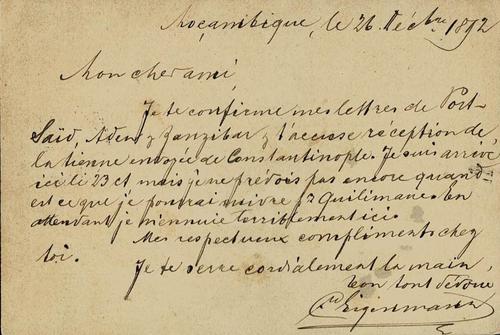 Moçambique, le 26 Décbre 1892
Mon cher ami,
Je te confirme mes lettres de Port-
Saïd, Aden & Zanzibar & t'accuse réception de
la tienne envoyée de Constantinople. Je suis arrivé
ici le 23 ct mais je ne prévois pas encore quand
est ce que je pourrai suivre Quilimane. En
attendant je m'ennuie terriblement ici.
Mes respectueux compliments chez
toi.
Je te serre cordialement la main,
ton tout dévoué